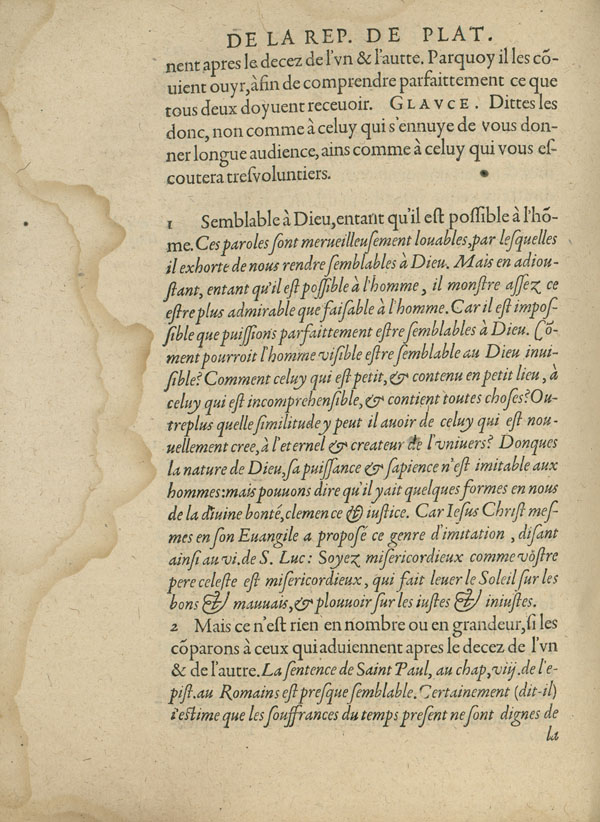 DE LA REP. DE PLAT.
nent apres le decez de l'vn & l'autte. Parquoy il les cõ-
uient ouyr, àfin de comprendre parfaittement ce que
tous deux doyuent receuoir. GLAVCE. Dittes les
donc, non comme à celuy qui s'ennuye de vous don-
ner longue audience, ains comme à celuy qui vous eſ-
coutera treſvoluntiers.
1 Semblable à Dieu, entant qu'il eſt poſſible à l'hõ-
me. Ces paroles ſont merueilleuſement louables, par leſquelles
il exhorte de nous rendre ſemblables à Dieu. Mais en adiou-
ſtant, entant qu'il eſt poſſible à l'homme, il monſtre aſſez ce
eſtre plus admirable que faiſable à l'homme. Car il eſt impoſ-
ſible que puiſſions parfaittement eſtre ſemblables à Dieu. Cõ-
ment pourroit l'homme viſible eſtre ſemblable au Dieu inui-
ſible? Comment celuy qui eſt petit, & contenu en petit lieu, à
celuy qui eſt incomprehenſible, & contient toutes choſes? Ou-
treplus quelle ſimilitude y peut il auoir de celuy qui eſt nou-
uellement cree, à l'eternel & createur de l'vniuers? Donques
la nature de Dieu, ſa puiſſance & ſapience n'eſt imitable aux
hommes: mais pouuons dire qu'il yait quelques formes en nous
de la diuine bonté, clemence & iuſtice. Car Ieſus Chriſt meſ-
mes en ſon Euangile a propoſé ce genre d'imitation, diſant
ainſi au vi. de S. Luc: Soyez miſericordieux comme vôſtre
pere celeſte eſt miſericordieux, qui fait leuer le Soleil ſur les
bons & mauuais, & plouuoir ſur les iuſtes & iniuſtes.
2 Mais ce n'eſt rien en nombre ou en grandeur, ſi les
cõparons à ceux qui aduiennent apres le decez de l'vn
& de l'autre. La ſentence de Saint Paul, au chap, viij. de l'e-
piſt. au Romains eſt preſque ſemblable. Certainement (dit-il)
i'eſtime que les ſouffrances du temps preſent ne ſont dignes de
la